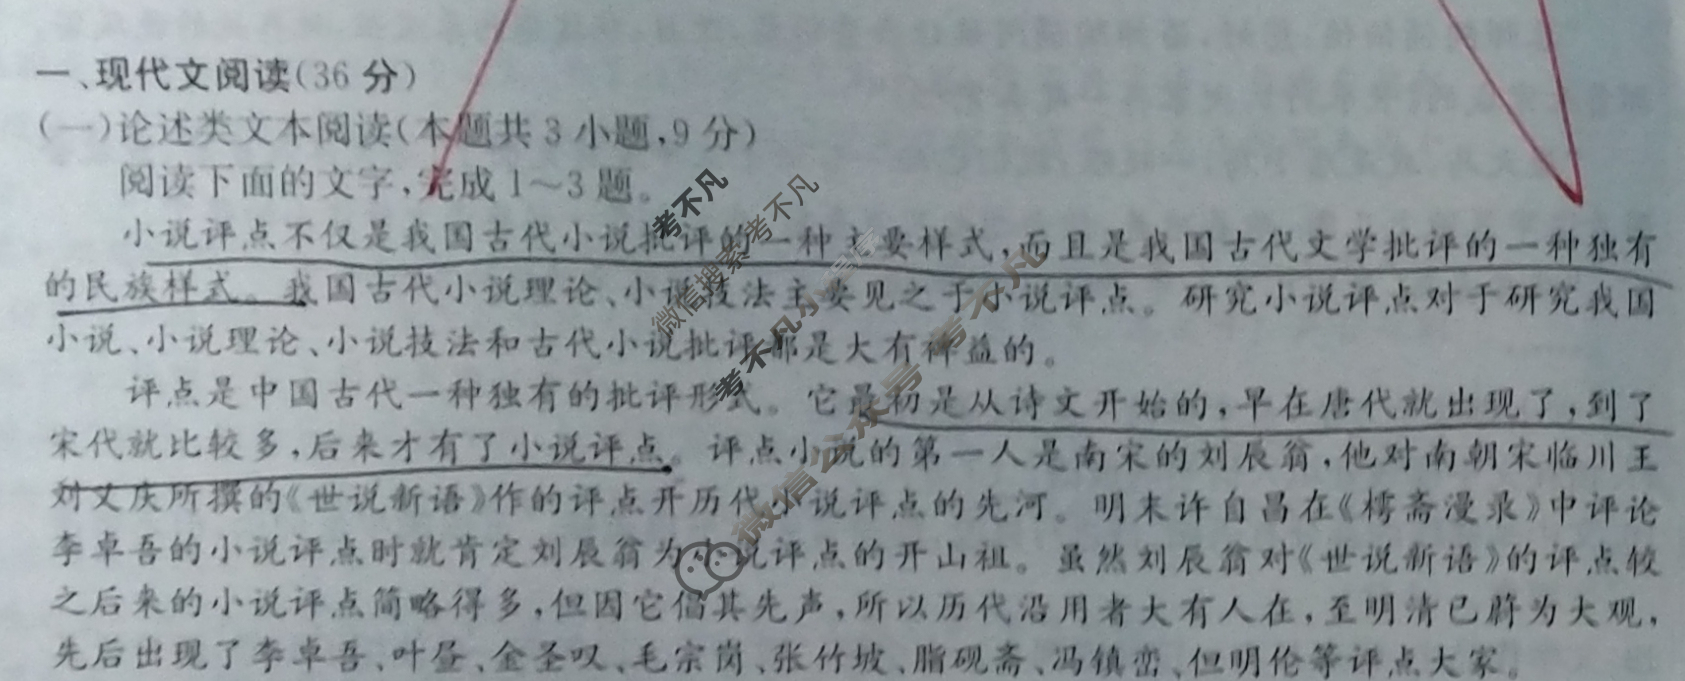 一、现代文阅读(36分)
(一)论述类文本阅读(本题共3小题,9分)
阅读下面的文字,完成1～3题。
小说评点不仅是我国古代小说批评的一种主要样式,而且是我国古代文学批评的一种独有
的民族样式。我国古代小说理论、小说技法主要见之于小说评点。研究小说评点对于研究我国
小说、小说理论、小说技法和古代小说批评都是大有裨益的。
评点是中国古代一种独有的批评形式。它最初是从诗文开始的,早在唐代就出现了,到了
宋代就比较多,后来才有了小说评点。评点小说的第一人是南宋的刘辰翁,他对南朝宋临川王
刘义庆所撰的《世说新语》作的评点开历代小说评点的先河。明末许自昌在《樗斋漫录》中评论
李卓吾的小说评点时就肯定刘辰翁为小说评点的开山祖。虽然刘辰翁对《世说新语》的评点较
之后来的小说评点简略得多,但因它倡其先声,所以历代沿用者大有人在,至明清已蔚为大观,
先后出现了李卓吾、叶昼、金圣叹、毛宗岗、张竹坡、脂砚斋、冯镇峦、但明伦等评点大家。
微信搜索考不凡
考不凡
考不凡小程序
微信公众号考不凡